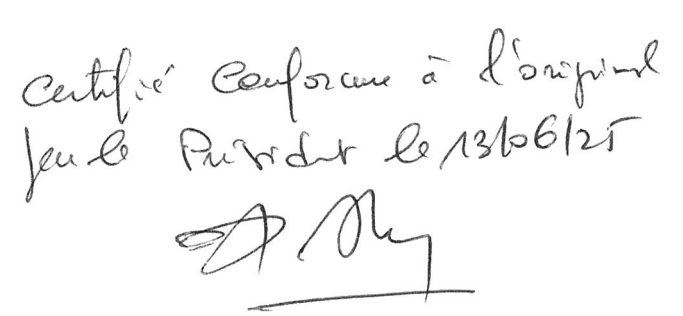 Certifié Conforme à l'original
par le Président le 13/06/25